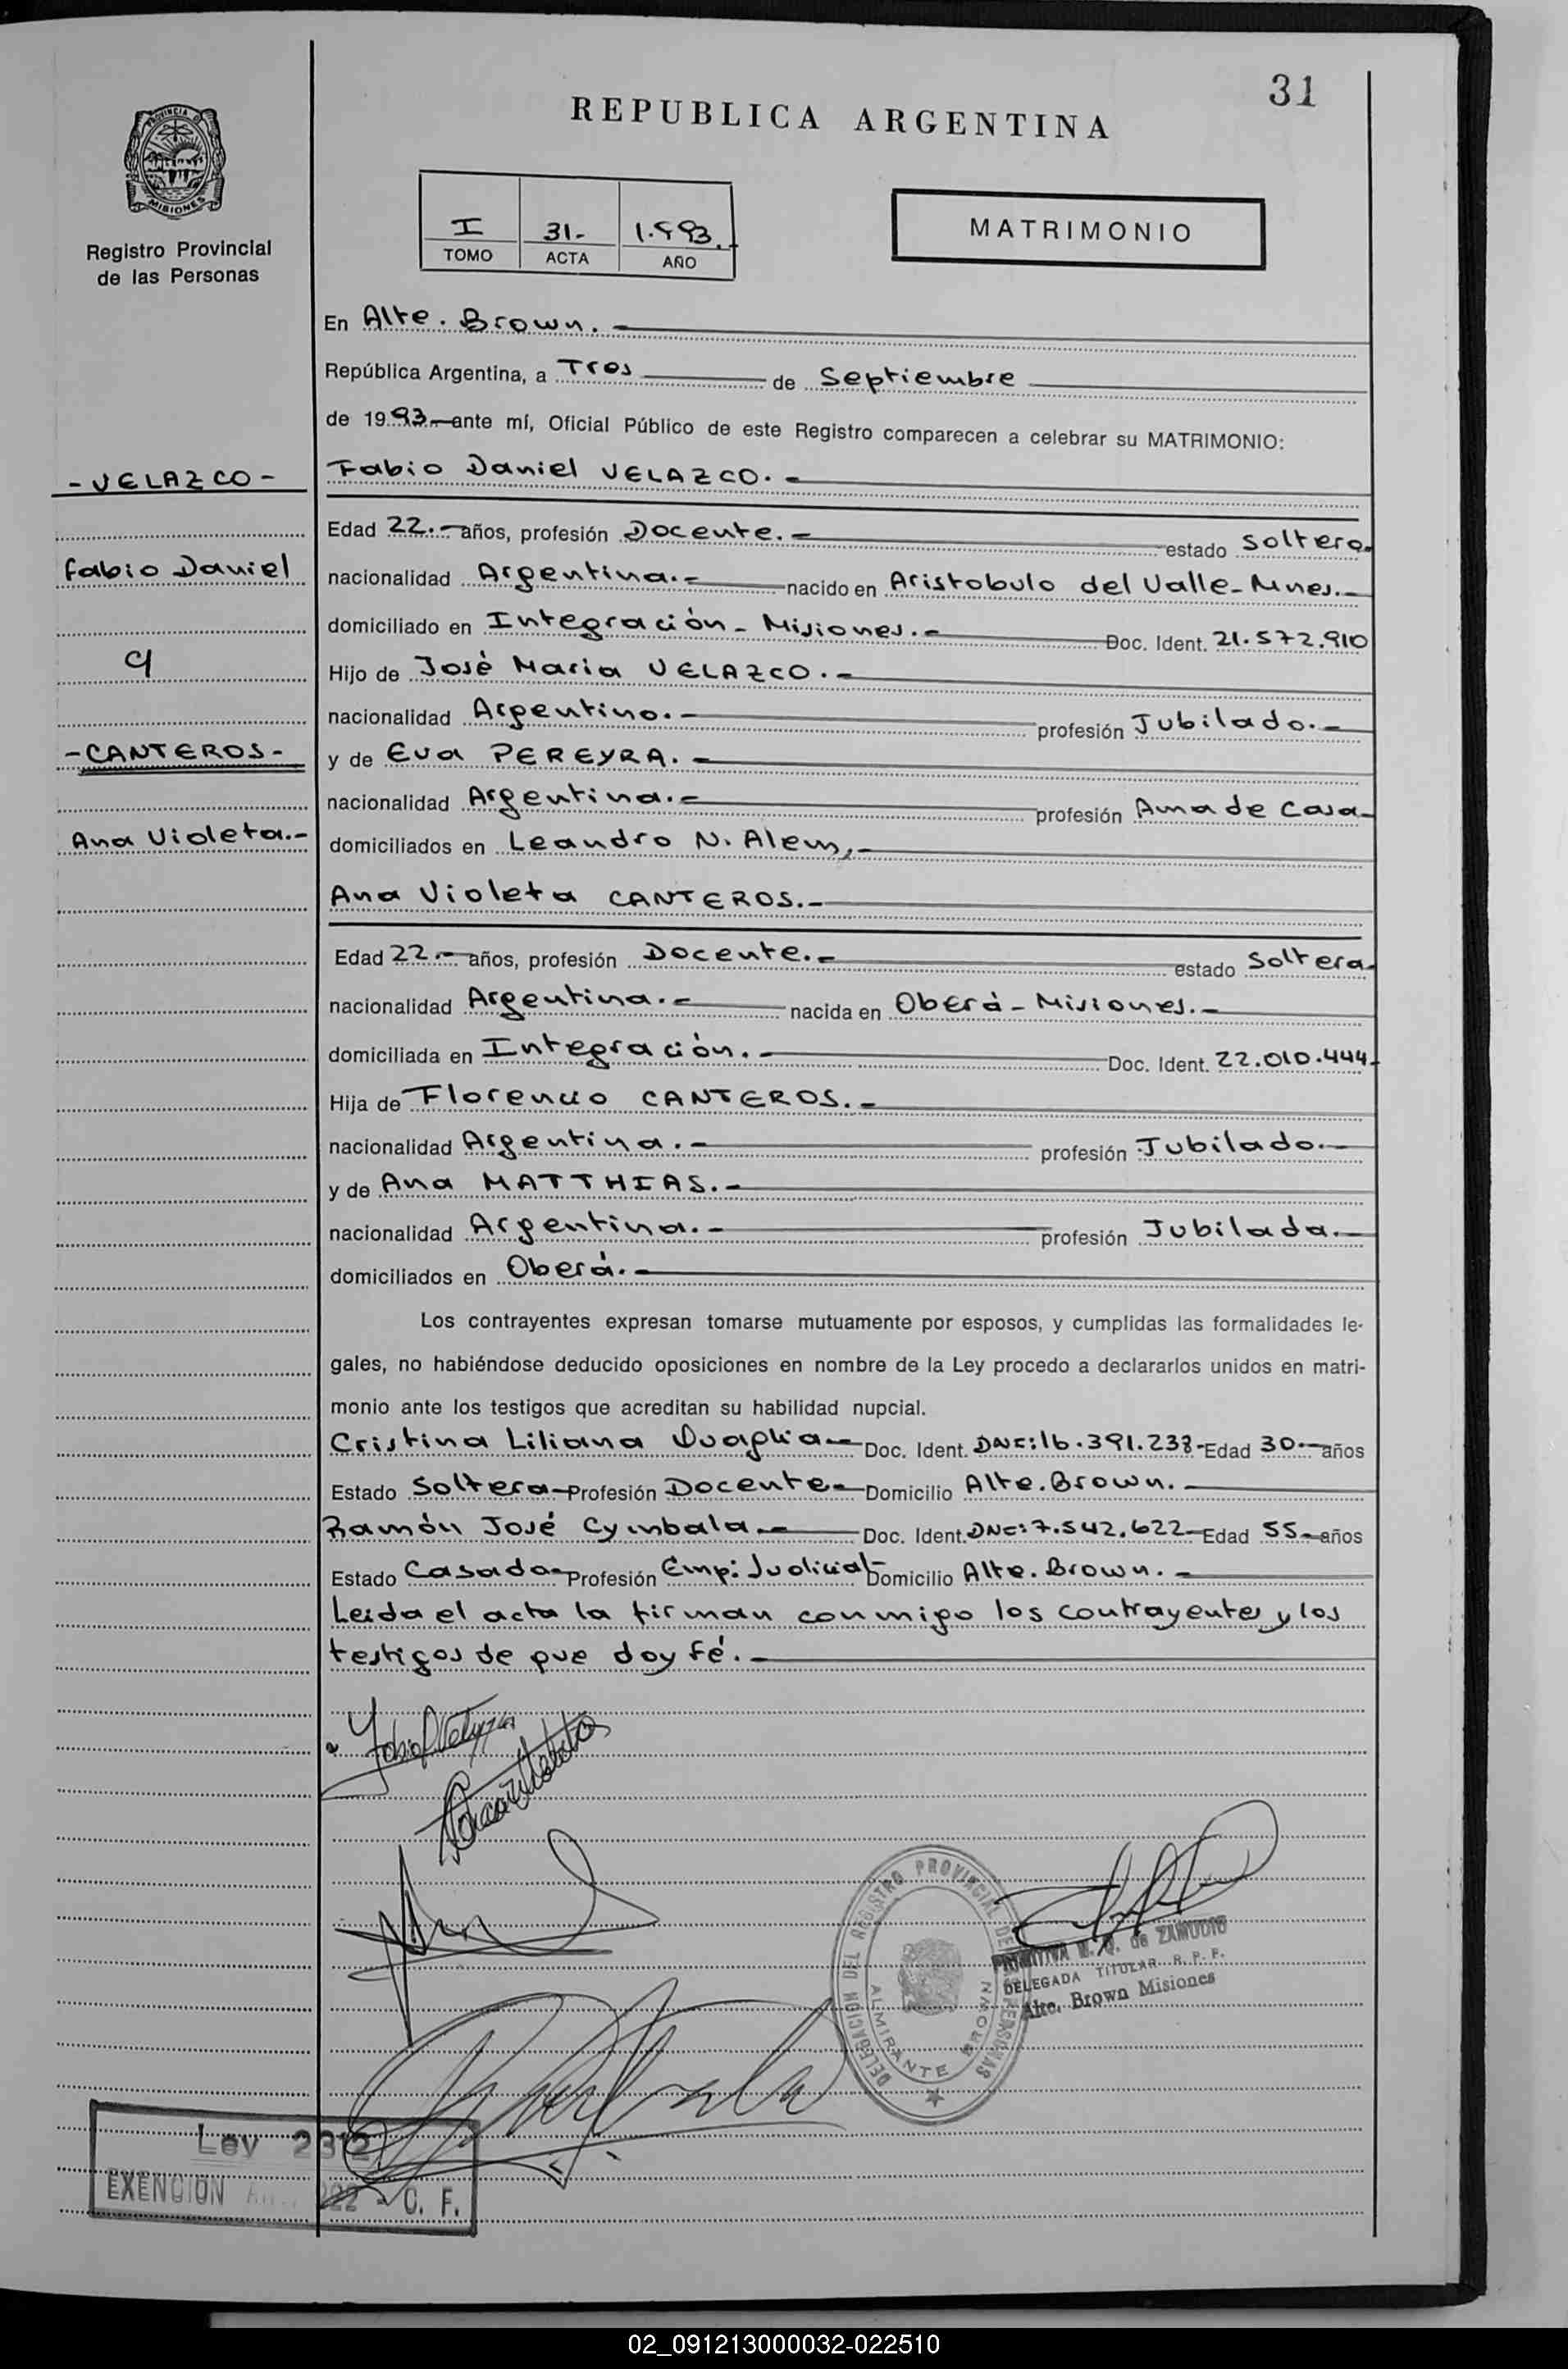 31
REPUBLICA ARGENTINA
PROVINCIA D
MISIONES
Registro Provincial
de las Personas
I 31.- 1.993.-
TOMO ACTA AÑO
MATRIMONIO
En Alte. Brown.-
República Argentina, a Tres de Septiembre
de 1993.- ante mí, Oficial Público de este Registro comparecen a celebrar su MATRIMONIO:
- VELAZCO -
Fabio Daniel VELAZCO.-
Edad 22.- años, profesión Docente.- estado Soltero-
Fabio Daniel
nacionalidad Argentina.- nacido en Aristobulo del Valle- Mnes.-
domiciliado en Integración - Misiones.- Doc. Ident. 21.572.910
Hijo de José Maria VELAZCO.-
nacionalidad Argentino.- profesión Jubilado.-
- CANTEROS -
y de Eva PEREYRA.-
nacionalidad Argentina.- profesión Ama de Casa-
Ana Violeta.-
domiciliados en Leandro N. Alem,-
Ana Violeta CANTEROS.-
Edad 22.- años, profesión Docente.- estado Soltera-
nacionalidad Argentina.- nacida en Oberá - Misiones.-
domiciliada en Integración.- Doc. Ident. 22.010.444-
Hija de Florencio CANTEROS.-
nacionalidad Argentina.- profesión Jubilado.-
y de Ana MATTHIAS.-
nacionalidad Argentina.- profesión Jubilada.-
domiciliados en Oberá.-
Los contrayentes expresan tomarse mutuamente por esposos, y cumplidas las formalidades le-
gales, no habiéndose deducido oposiciones en nombre de la Ley procedo a declararlos unidos en matri-
monio ante los testigos que acreditan su habilidad nupcial.
Cristina Liliana Doc. Ident. 16.391.238- Edad 30.- años
Estado Soltera- Profesión Docente- Domicilio Alte. Brown.-
Ramón José Cymbala.- Doc. Ident. 7.542.622- Edad 55- años
Estado Casado- Profesión Emp: Judicial- Domicilio Alte. Brown.-
Leida el acta la firman conmigo los contrayentes y los
testigos de que doy fé.-
DELEGACION DEL REGISTRO PROVINCIAL DE LAS PERSONAS
ALMIRANTE BROWN
PRIMITIVA de ZAMUDIO
DELEGADA TITULAR R. P. P.
Alte. Brown Misiones
Ley 2312
EXENCION 222 - C. F.
02_091213000032-022510